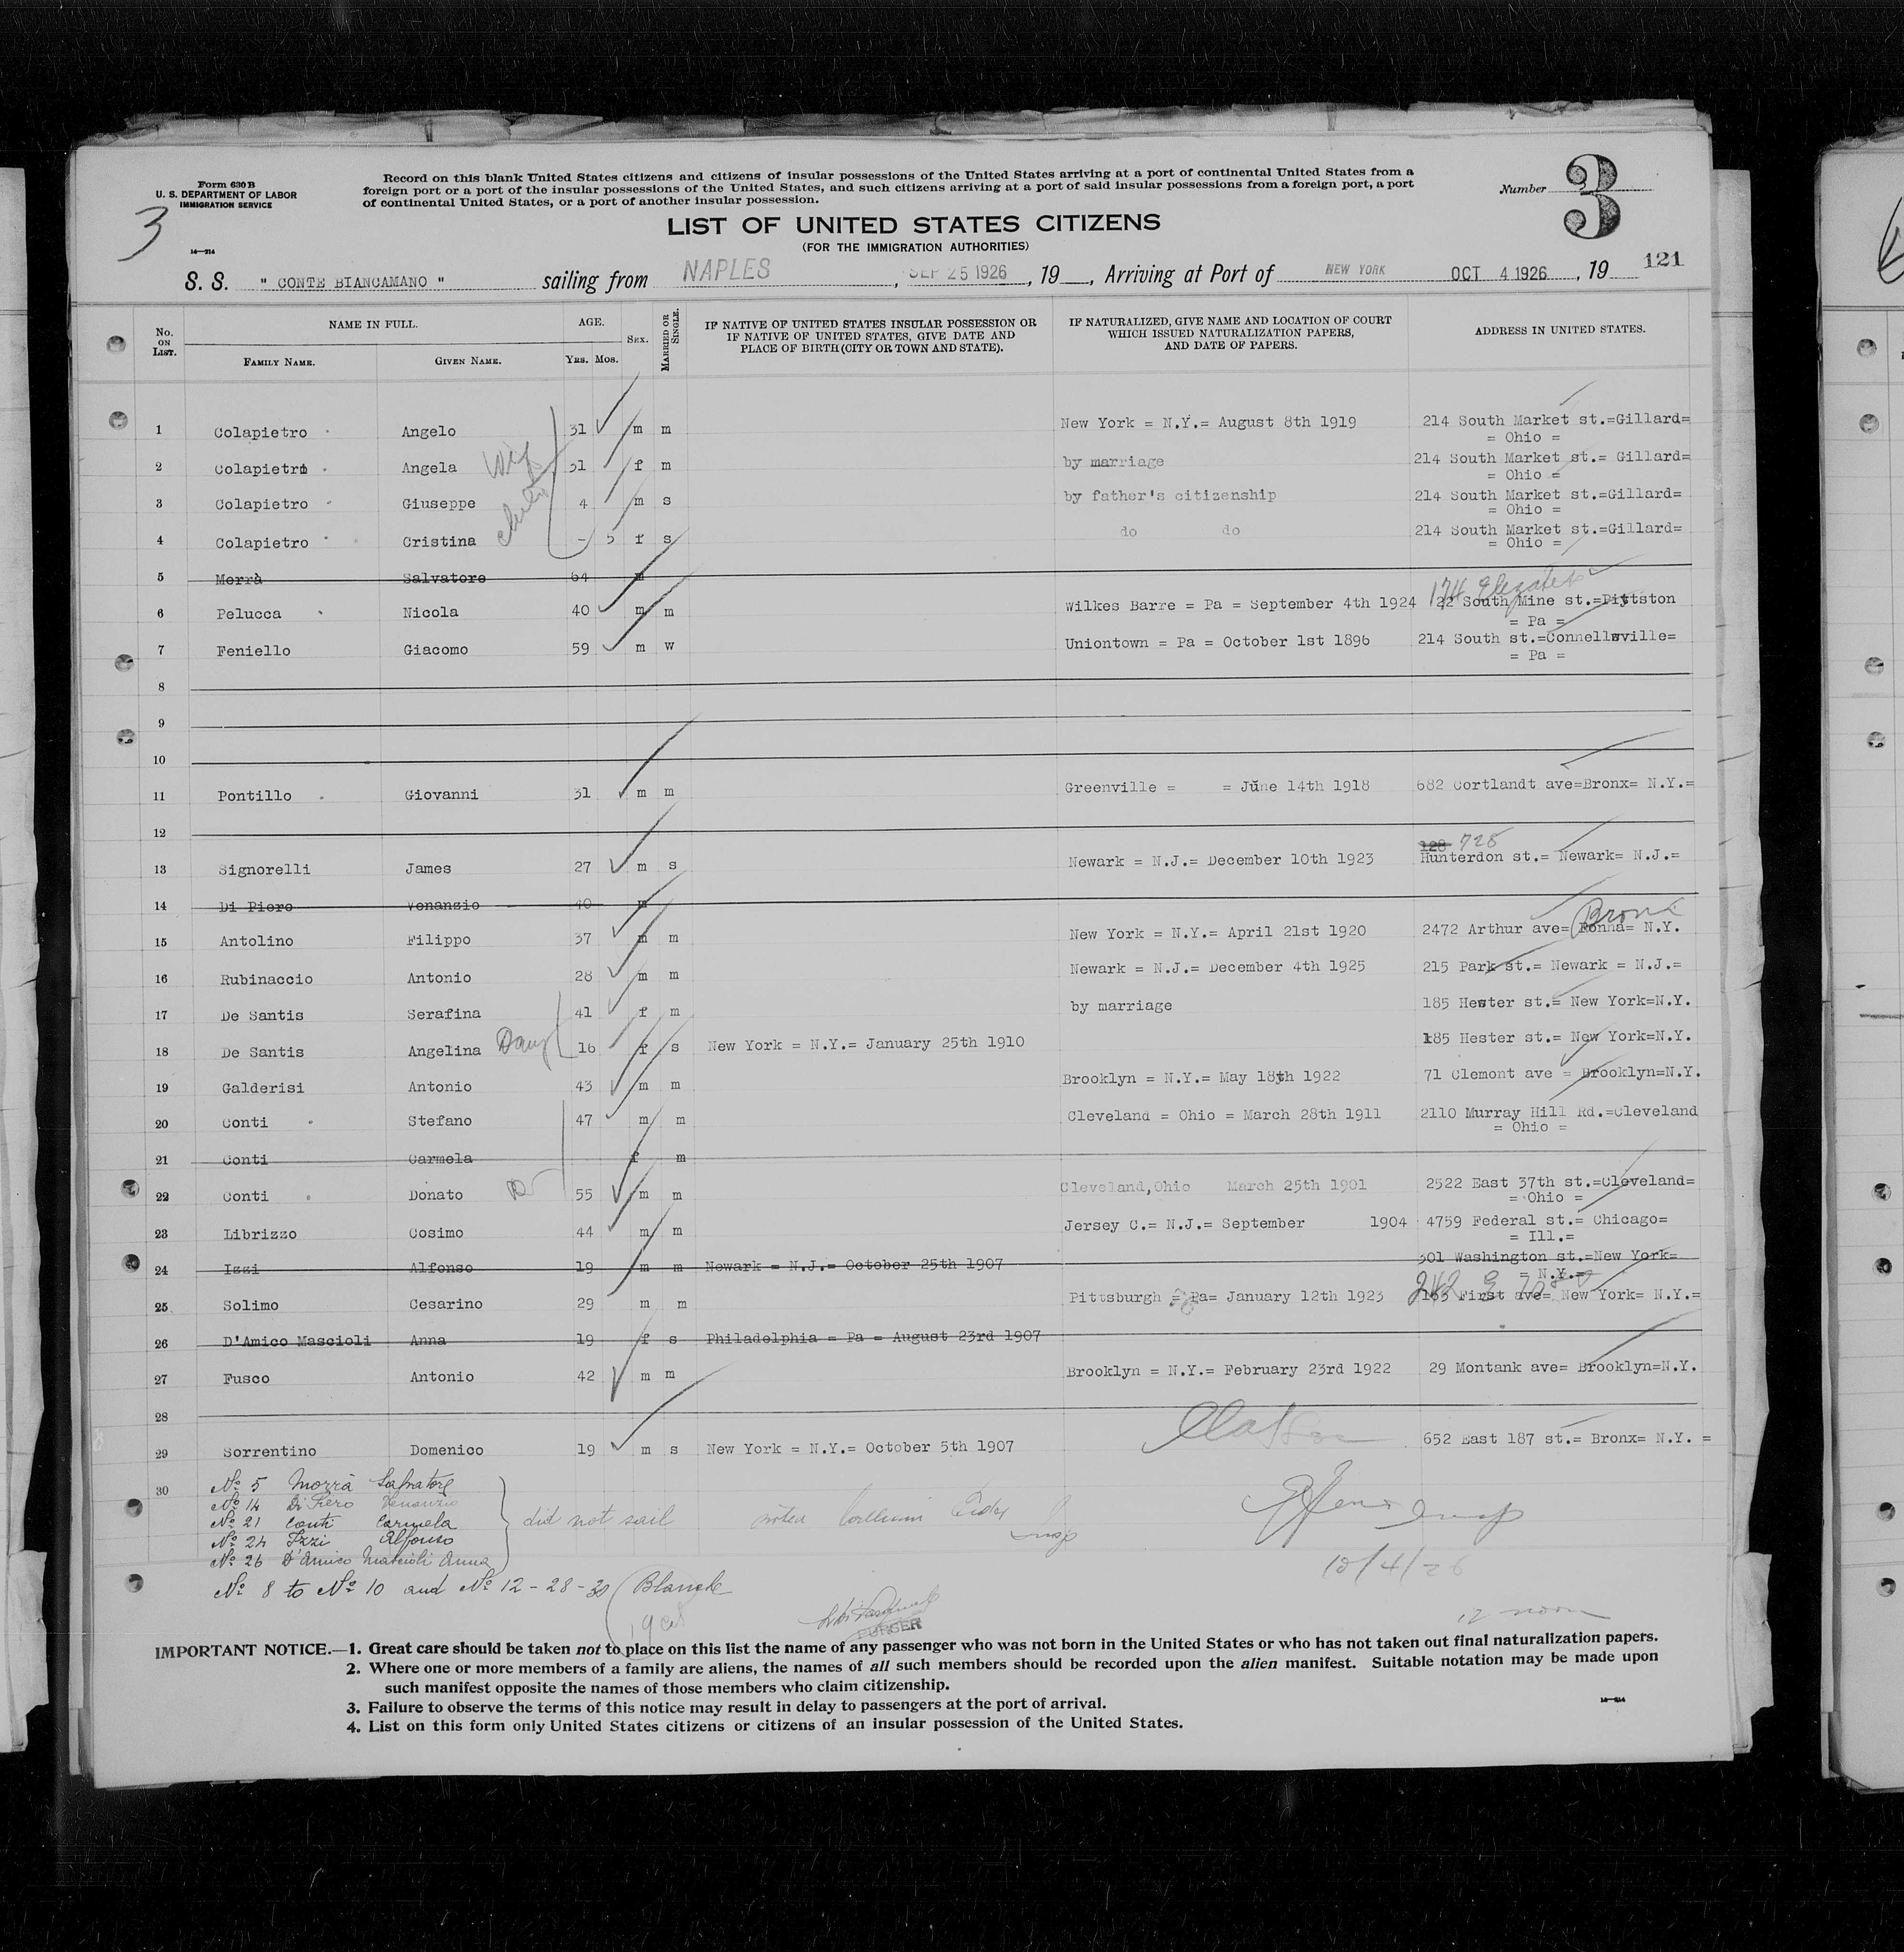 Form 630 B
U. S. DEPARTMENT OF LABOR
IMMIGRATION SERVICE
3
14—214
Record on this blank United States citizens and citizens of insular possessions of the United States arriving at a port of continental United States from a
foreign port or a port of the insular possessions of the United States, and such citizens arriving at a port of said insular possessions from a foreign port, a port
of continental United States, or a port of another insular possession.
Number 3
LIST OF UNITED STATES CITIZENS
(FOR THE IMMIGRATION AUTHORITIES)
S. S. " CONTE BIANCAMANO " sailing from NAPLES, SEP 25 1926, 19__, Arriving at Port of NEW YORK OCT 4 1926, 19__ 121
No. ON LIST. NAME IN FULL. FAMILY NAME. GIVEN NAME. AGE. YRS. MOS. SEX. MARRIED OR SINGLE. IF NATIVE OF UNITED STATES INSULAR POSSESSION OR IF NATIVE OF UNITED STATES, GIVE DATE AND PLACE OF BIRTH (CITY OR TOWN AND STATE). IF NATURALIZED, GIVE NAME AND LOCATION OF COURT WHICH ISSUED NATURALIZATION PAPERS, AND DATE OF PAPERS. ADDRESS IN UNITED STATES.
1 Colapietro Angelo 31 m m New York = N.Y.= August 8th 1919 214 South Market st.=Gillard=
= Ohio =
2 Colapietro Angela Wife 31 f m by marriage 214 South Market st.= Gillard=
= Ohio =
3 Colapietro Giuseppe 4 m s by father's citizenship 214 South Market st.=Gillard=
= Ohio =
4 Colapietro Cristina - 5 f s do do 214 South Market st.=Gillard=
= Ohio =
5 Morrà Salvatore 64 m
174
6 Pelucca Nicola 40 m m Wilkes Barre = Pa = September 4th 1924 22 South Mine st.=Pittston
= Pa =
7 Feniello Giacomo 59 m w Uniontown = Pa = October 1st 1896 214 South st.=Connellsville=
= Pa =
8
9
10
11 Pontillo Giovanni 31 m m Greenville = = June 14th 1918 682 Cortlandt ave=Bronx= N.Y.=
12
128 728
13 Signorelli James 27 m s Newark = N.J.= December 10th 1923 Hunterdon st.= Newark= N.J.=
14 Di Piero Venanzio 40 m
Bronx
15 Antolino Filippo 37 m m New York = N.Y.= April 21st 1920 2472 Arthur ave= Ronna= N.Y.
16 Rubinaccio Antonio 28 m m Newark = N.J.= December 4th 1925 215 Park st.= Newark = N.J.=
17 De Santis Serafina 41 f m by marriage 185 Hester st.= New York=N.Y.
18 De Santis Angelina Daug 16 f s New York = N.Y.= January 25th 1910 185 Hester st.= New York=N.Y.
19 Galderisi Antonio 43 m m Brooklyn = N.Y.= May 18th 1922 71 Clemont ave = Brooklyn=N.Y.
20 Conti Stefano 47 m m Cleveland = Ohio = March 28th 1911 2110 Murray Hill Rd.=Cleveland
= Ohio =
21 Conti Carmela f m
22 Conti Donato 55 m m Cleveland,Ohio March 25th 1901 2522 East 37th st.=Cleveland=
= Ohio =
23 Librizzo Cosimo 44 m m Jersey C.= N.J.= September 1904 4759 Federal st.= Chicago=
= Ill.=
24 Izzi Alfonso 19 m m Newark = N.J.= October 25th 1907 301 Washington st.=New York=
= N.Y.=
25 Solimo Cesarino 29 m m Pittsburgh = Pa= January 12th 1923 163 First ave= New York= N.Y.=
26 D'Amico Mascioli Anna 19 f s Philadelphia = Pa = August 23rd 1907
27 Fusco Antonio 42 m m Brooklyn = N.Y.= February 23rd 1922 29 Montank ave= Brooklyn=N.Y.
28
29 Sorrentino Domenico 19 m s New York = N.Y.= October 5th 1907 652 East 187 st.= Bronx= N.Y. =
30 No 5 Morrà Salvatore
No 14 Di Piero Venanzio
No 21 Conti Carmela
No 24 Izzi Alfonso
No 26 D'Amico Mascioli Anna
did not sail
Insp
10/4/26
12 noon
No 8 to No 10 and No 12 - 28 - 30 Blank
PURSER
IMPORTANT NOTICE.—1. Great care should be taken not to place on this list the name of any passenger who was not born in the United States or who has not taken out final naturalization papers.
2. Where one or more members of a family are aliens, the names of all such members should be recorded upon the alien manifest. Suitable notation may be made upon
such manifest opposite the names of those members who claim citizenship.
3. Failure to observe the terms of this notice may result in delay to passengers at the port of arrival.
4. List on this form only United States citizens or citizens of an insular possession of the United States.
14—214